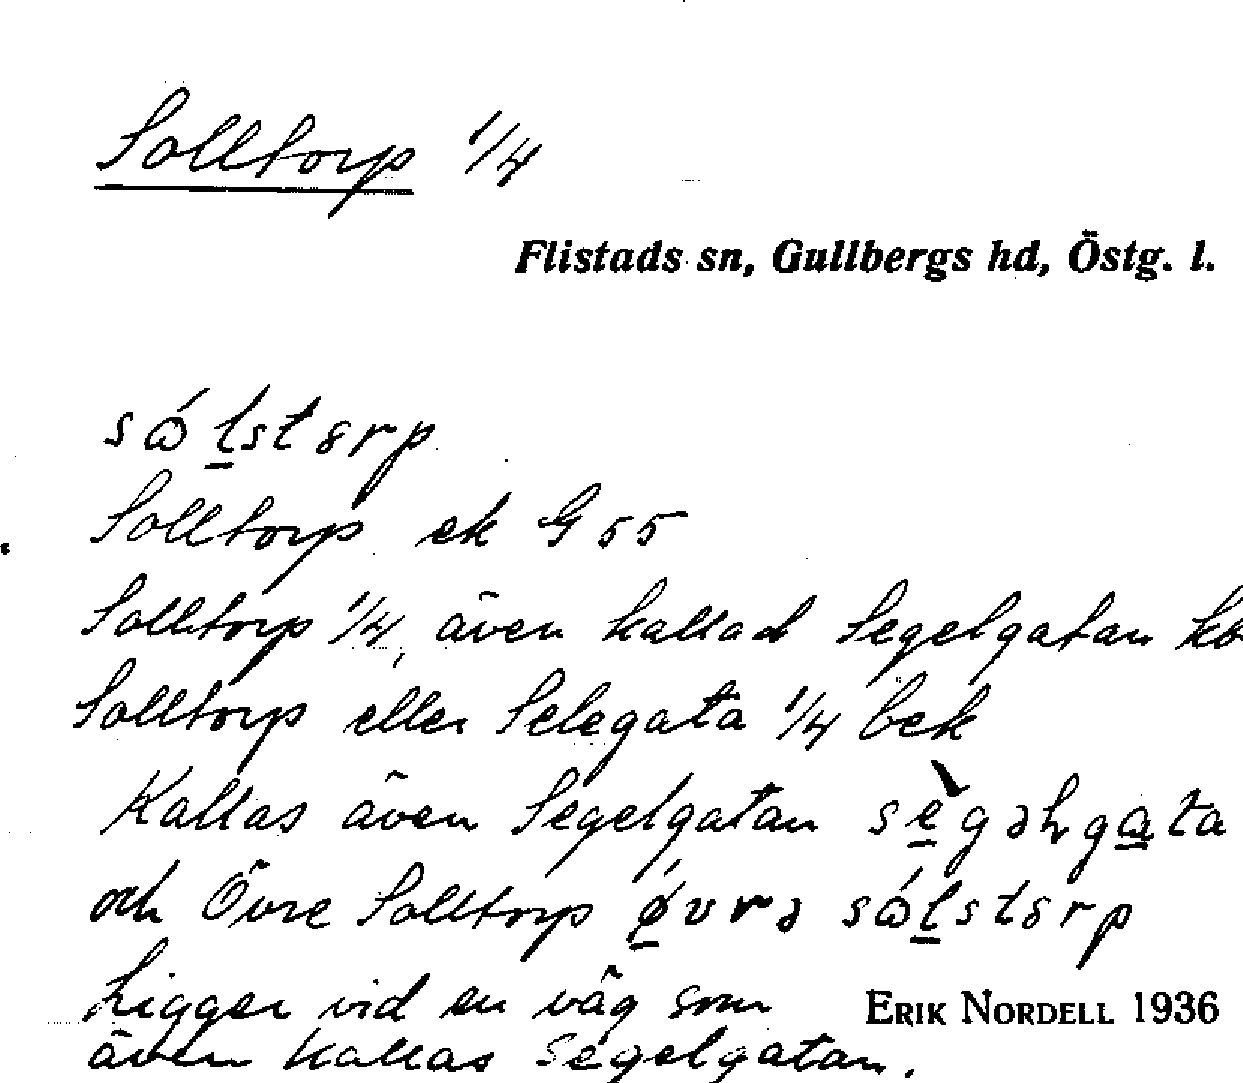 Solltorp 1/4
Flistads sn, Gullbergs hd, Östg. l.
Solltorp ek G 55
Solltorp 1/4, även kallad Segelgatan
Solltorp eller Selegata 1/4 bek
Kallas även Segelgatan
och Övre Solltorp
Ligger vid en väg som
ERIK NORDELL 1936
även kallas Segelgatan.